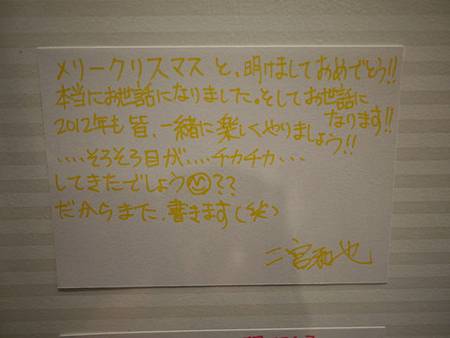 メリークリスマス と、明けましておめでとう!!
本当にお世話になりました。そしてお世話に
なります!!
2012年も 皆、一緒に楽しくやりましょう!!
....そろそろ目が....チカチカ...
してきたでしょう??
だからまた、書きます(笑)
二宮和也